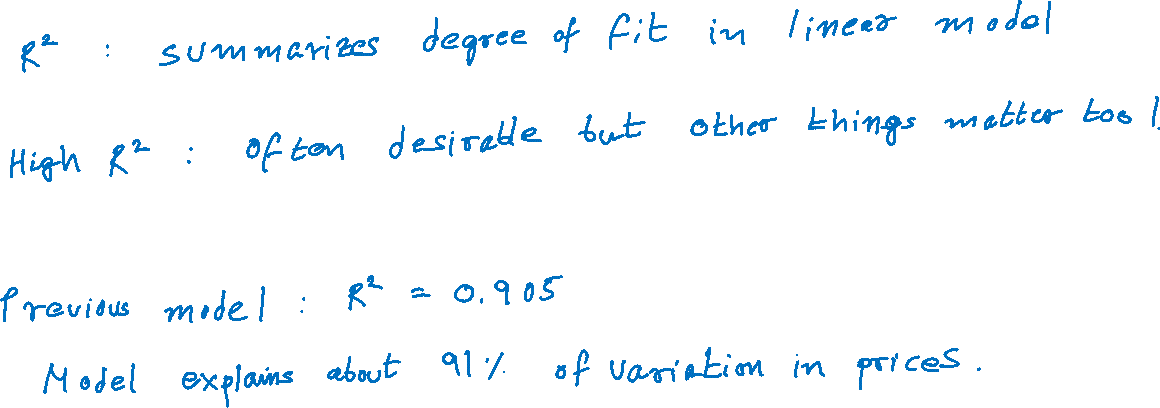 R² : summarizes degree of fit in linear model
High R² : often desirable but other things matter too!
Previous model : R² = 0.905
Model explains about 91% of variation in prices.